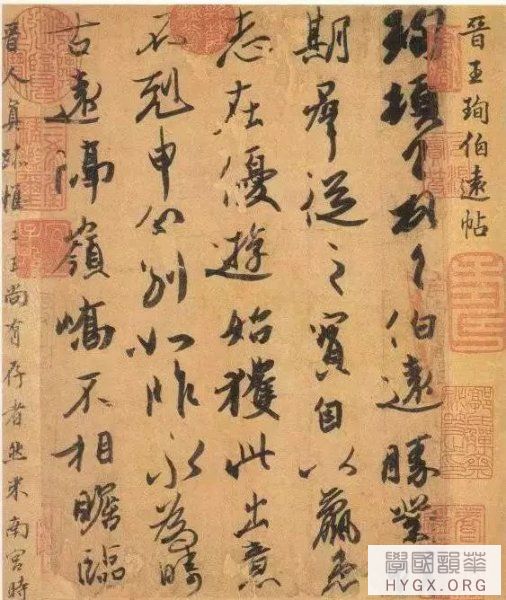 晉王珣伯遠帖
珣頓首頓首伯遠勝業
期群從之寶自以羸患
志在優遊始獲此出意
不剋申分別如昨永為疇
古遠隔嶺嶠不相瞻臨
晉人真跡惟二王尚有存者然米南宮時
學國韻華
HYGX.ORG